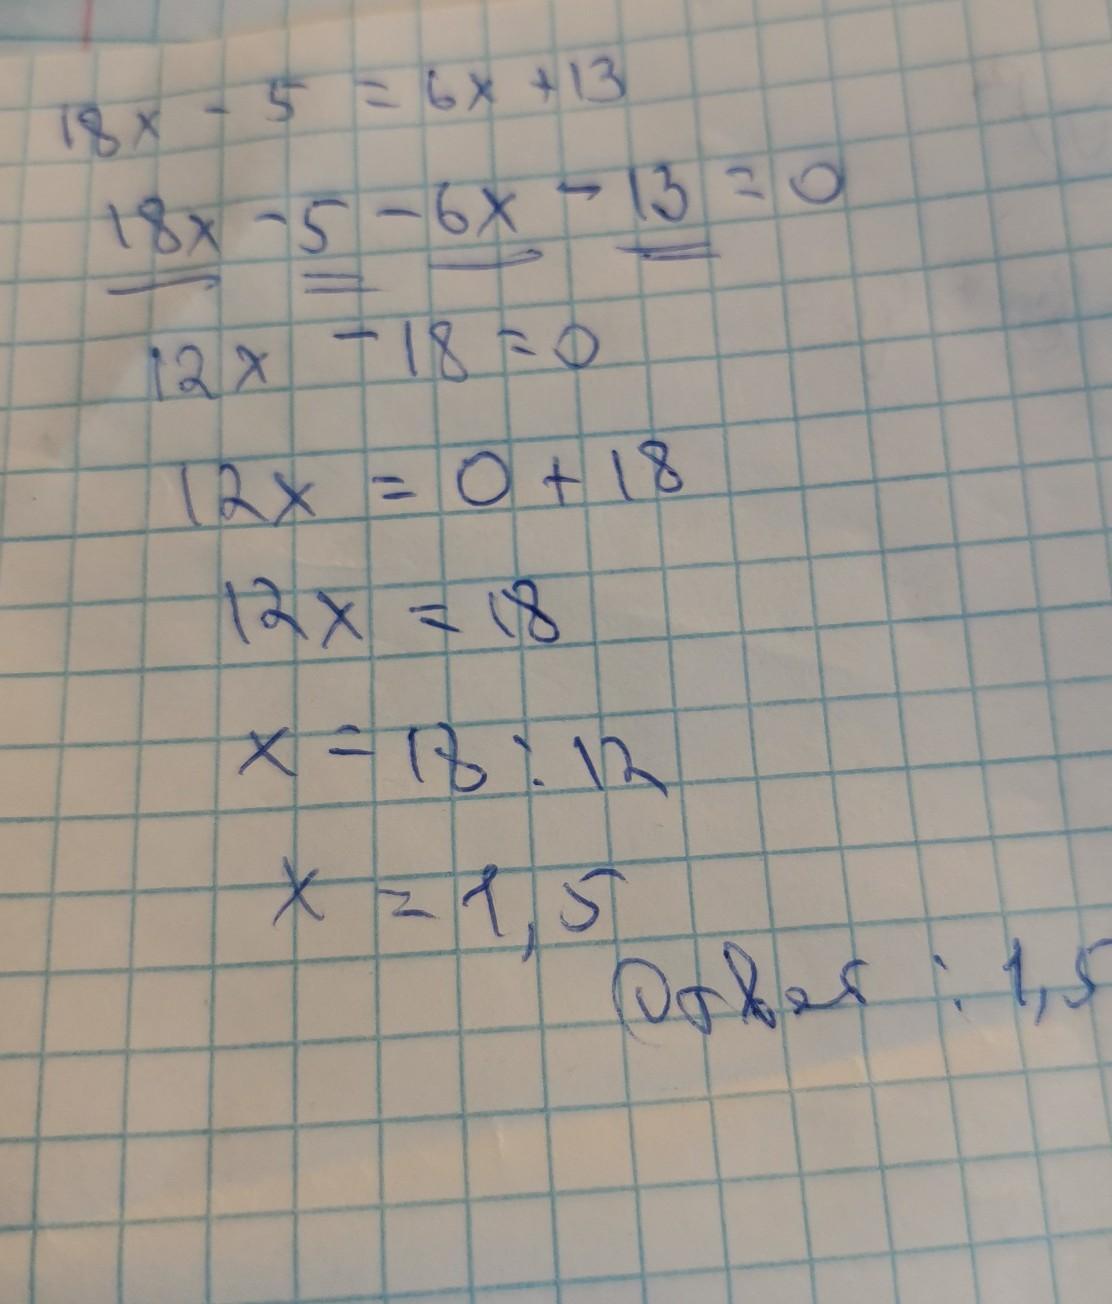 18x - 5 = 6x + 13
18x - 5 - 6x - 13 = 0
12x - 18 = 0
12x = 0 + 18
12x = 18
x = 18 : 12
x = 1,5
Ответ : 1,5